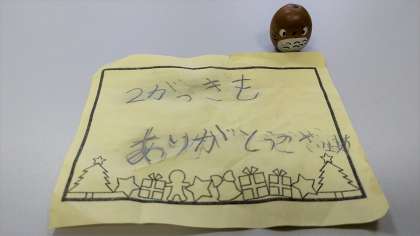 2がっきも
ありがとうござい